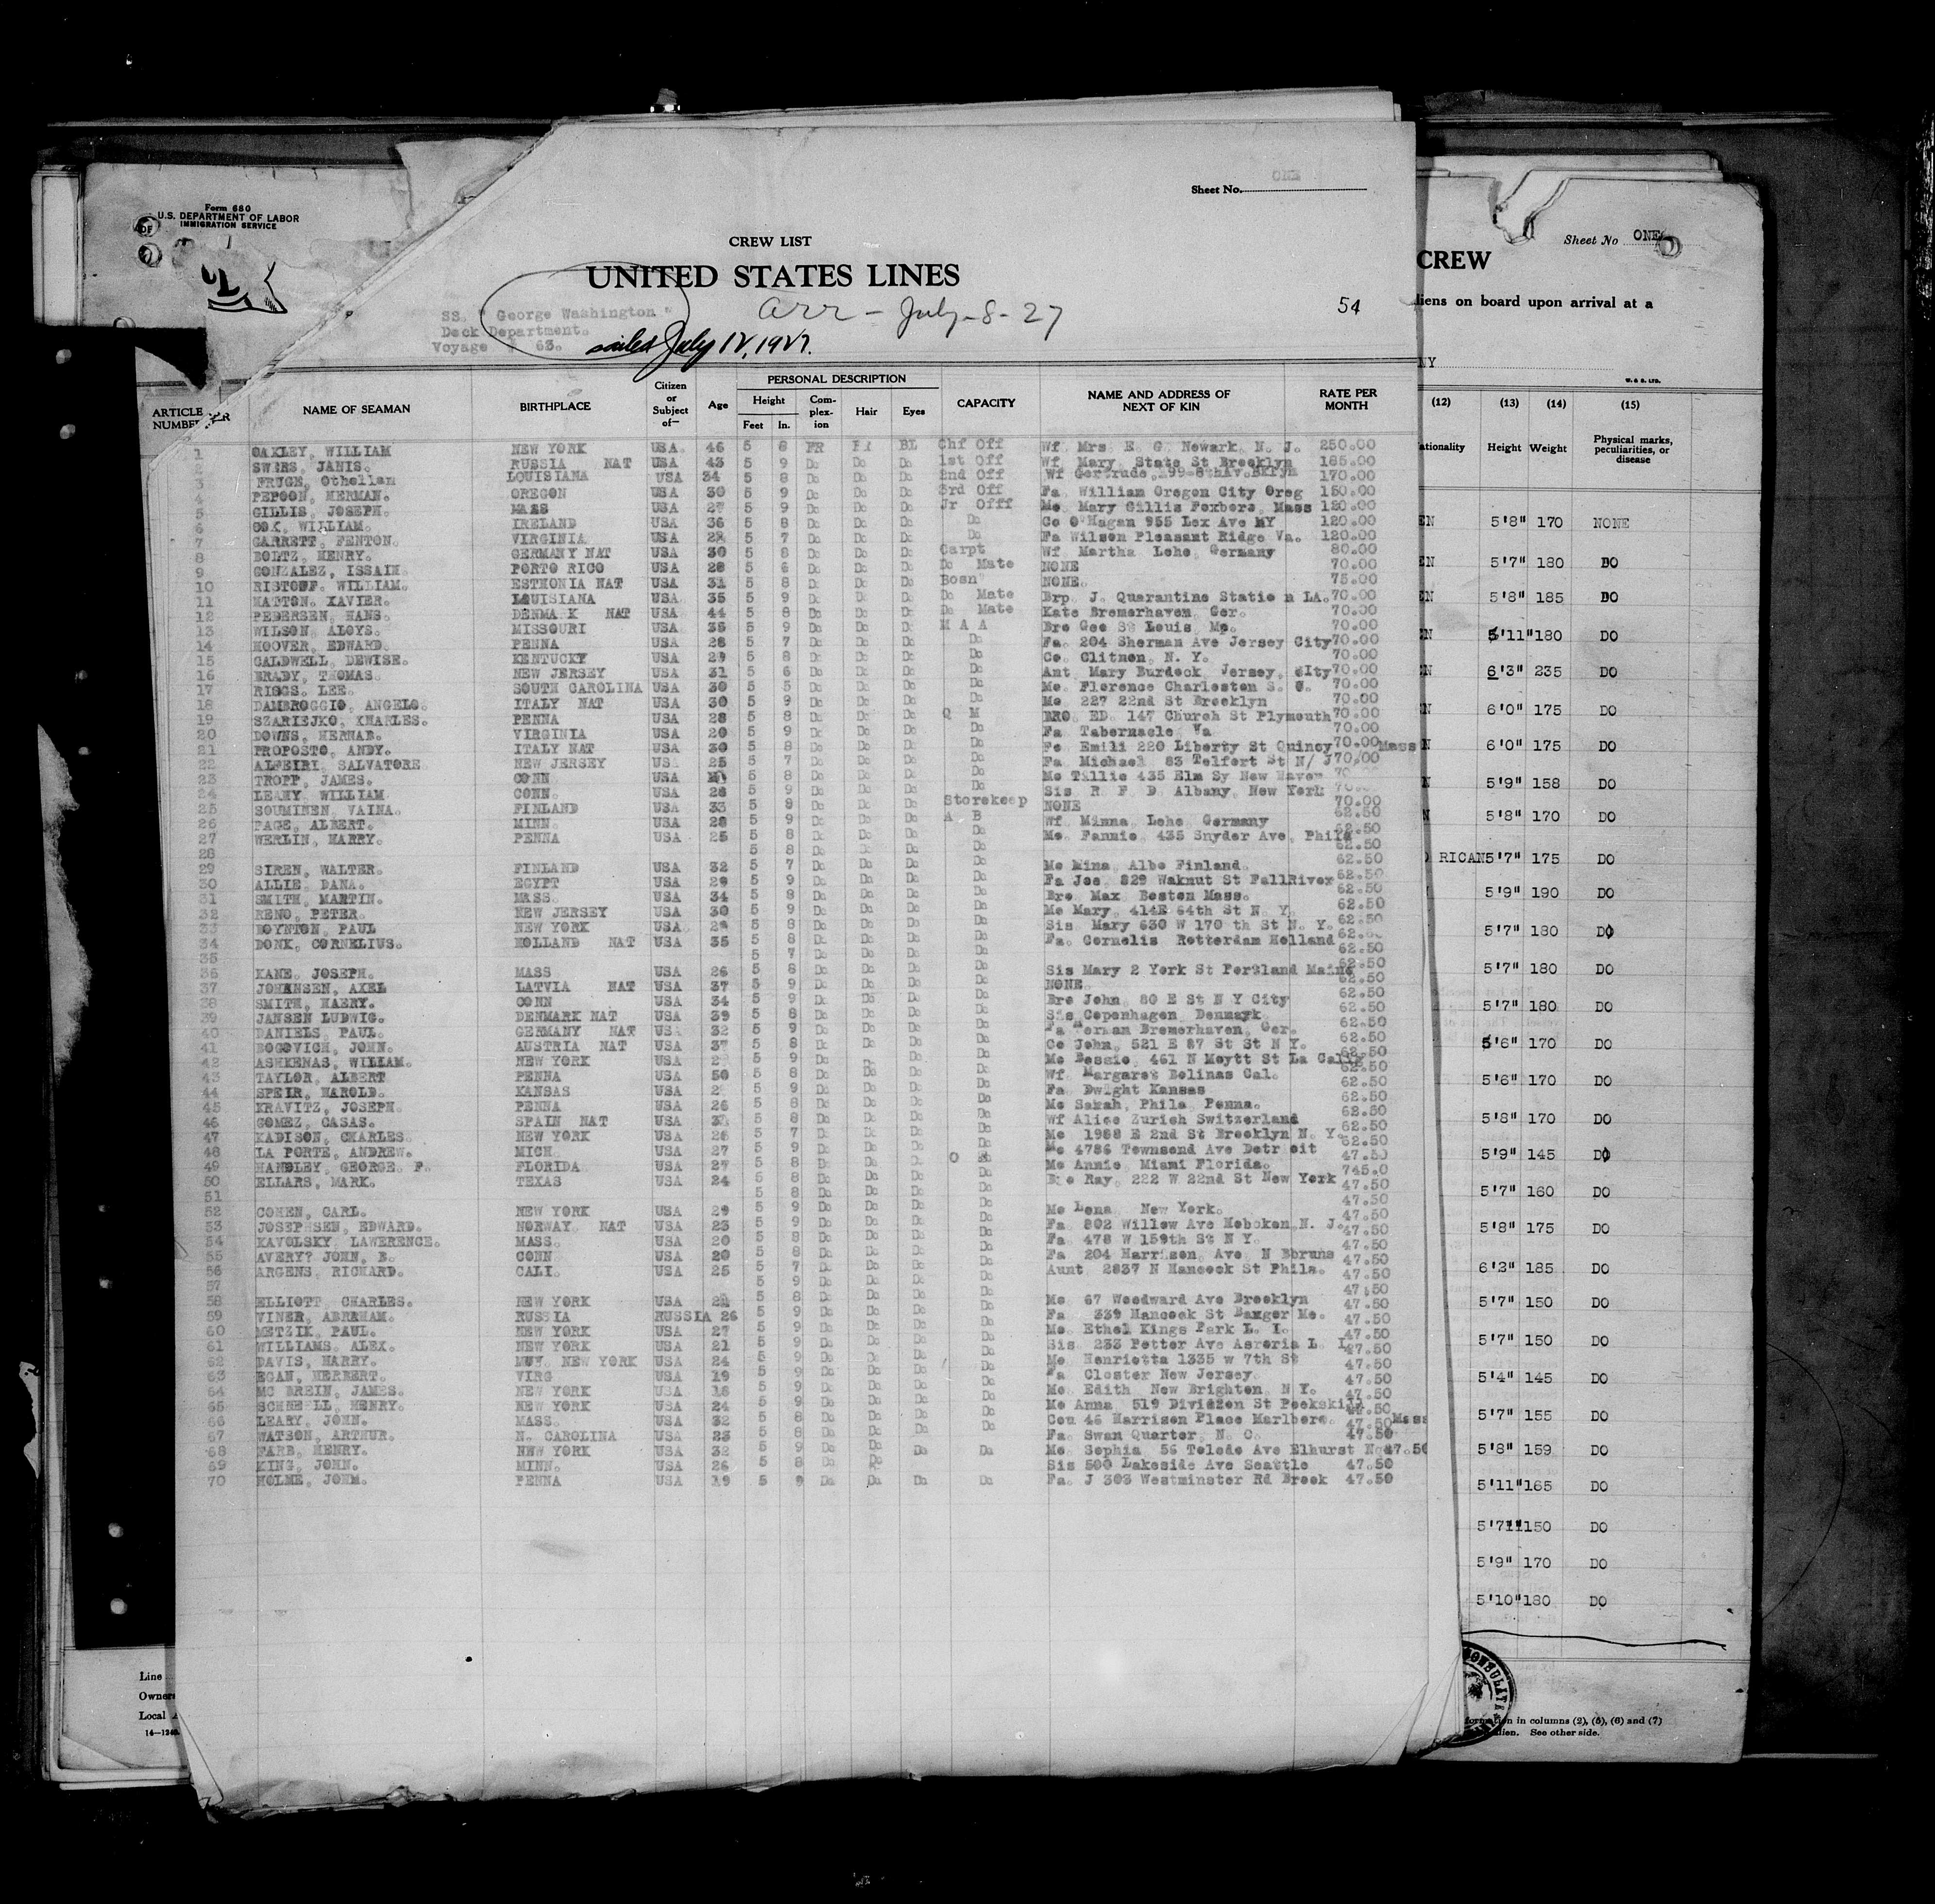 Form 680
U.S. DEPARTMENT OF LABOR
IMMIGRATION SERVICE
OF
ONE
Sheet No.
CREW LIST
UNITED STATES LINES
SS. " George Washington "
Deck Department.
Voyage # 63.
arr - July-8-27
sailed July 12, 1927.
54
Sheet No ONE
CREW
liens on board upon arrival at a
NY
W. & S. LTD.
ARTICLE NUMBER NAME OF SEAMAN BIRTHPLACE Citizen or Subject of— Age PERSONAL DESCRIPTION Height Feet In. Complexion Hair Eyes CAPACITY NAME AND ADDRESS OF NEXT OF KIN RATE PER MONTH
1 OAKLEY, WILLIAM NEW YORK USA. 46 5 8 FR BL Chf Off Wf. Mrs. E. G. Newark, N. J. 250.00
2 SWERS, JANIS. RUSSIA NAT USA 43 5 9 Do Do Do 1st Off Wf. Mary, State St Brooklyn 185.00
3 FRUGE, Othellan LOUISIANA USA 34 5 8 Do Do Do 2nd Off Wf Gertrude, 99-8thAv.Bklyn 170.00
4 PEPOON, HERMAN. OREGON USA 30 5 9 Do Do Do 3rd Off Fa. William Oregon City Oreg 150.00
5 GILLIS, JOSEPH. MASS USA 27 5 9 Do Do Do Jr Offf Mo. Mary Gillis Foxboro, Mass 120.00
6 COX, WILLIAM. IRELAND USA 36 5 8 Do Do Do Do Co O'Hagan 955 Lex Ave NY 120.00
7 GARRETT, FENTON. VIRGINIA USA 28 5 7 Do Do Do Do Fa Wilson Pleasant Ridge Va. 120.00
8 BOLTZ, HENRY. GERMANY NAT USA 30 5 8 Do Do Do Carpt Wf. Martha Lehe, Germany 80.00
9 GONZALEZ, ISSAIH. PORTO RICO USA 28 5 6 Do Do Do Do Mate NONE 70.00
10 RISTOFF, WILLIAM. ESTHONIA NAT USA 31 5 8 Do Do Do Bosn NONE. 75.00
11 MATTON, XAVIER. LOUISIANA USA. 35 5 9 Do Do Do Do Mate Brp. J. Quarantine Statio n LA. 70.00
12 PEDERSEN, HANS. DENMA K NAT USA 44 5 8 Do Do Do Do Mate Kate Bremerhaven, Ger. 70.00
13 WILSON, ALOYS. MISSOURI USA 38 5 9 Do Do Do M A A Bro Geo St Louis, Mo. 70.00
14 HOOVER, EDWARD. PENNA USA 28 5 7 Do Do Do Do Fa. 204 Sherman Ave Jersey City 70.00
15 CALDWELL, DEWISE. KENTUCKY USA 29 5 8 Do Do Do Do Co. Clitnon, N. Y. 70.00
16 BRADY, THOMAS. NEW JERSEY USA 31 5 6 Do Do Do Do Ant. Mary Burdock, Jersey, CIty 70.00
17 RIGGS, LEE. SOUTH CAROLINA USA 30 5 5 Do Do Do Do Mo. Florence Charleston S. C. 70.00
18 DAMBROGGIO, ANGELO. ITALY NAT USA 30 5 9 Do Do Do Do Mo. 227 22nd St Brooklyn 70.00
19 SZARIEJKO, KHARLES. PENNA USA 28 5 8 Do Do Do Q M BRO. ED. 147 Church St Plymouth 70.00
20 DOWNS, HERNAD. VIRGINIA USA 20 5 9 Do Do Do Do Fa Tabernacle Va 70.00
21 PROPOSTO, ANDY. ITALY NAT USA 30 5 8 Do Do Do Do Fo Emili 220 Liberty St Quincy 70.00 Mass
22 ALFEIRI, SALVATORE NEW JERSEY USA 25 5 7 Do Do Do Do Fa Michael 83 Telfort St N/ J 70/00
23 TROPP, JAMES. CONN USA 5 8 Do Do Do Do Mo Tillie 435 Elm Sy New Haven 70
24 LEAHY WILLIAM CONN. USA 28 5 9 Do Do Do Do Sis. R F D Albany, New York 70
25 SOUMINEN, VAINA. FINLAND USA 33 5 8 Do Do Do Storekeep NONE 70.00
26 PAGE, ALBERT. MINN. USA 28 5 9 Do Do Do A B Wf. Minna, Lehe, Germany 62.50
27 WERLIN, HARRY. PENNA USA 25 5 8 Do Do Do Do Mo. Fannie, 435 Snyder Ave, Phila 62.50
28 5 8 Do Do Do Do 62.50
29 SIREN, WALTER. FINLAND USA 32 5 7 Do Do Do Do Mo Mina, Albo Finland. 62.50
30 ALLIE, DANA. EGYPT USA 29 5 9 Do Do Do Do Fa Joe, 829 Waknut St FallRiver 62.50
31 SMITH, MARTIN. MASS. USA 34 5 8 Do Do Do Do Bro. Max Boston Mass. 62.50
32 RENO, PETER. NEW JERSEY USA 30 5 9 Do Do Do Do Mo Mary, 414E 64th St N. Y. 62.50
33 BOYNTON, PAUL NEW YORK USA. 28 5 8 Do Do Do Do Sis. Mary 630 W 170 th St N. Y. 62.50
34 DONK, CORNELIUS. HOLLAND NAT USA 35 5 8 Do Do Do Do Fa. Cornelis Rotterdam Holland 62.50
35 5 7 Do Do Do Do 62.50
36 KANE, JOSEPH. MASS USA 26 5 8 Do Do Do Do Sis Mary 2 York St Portland Maine 62.50
37 JOHANSEN, AXEL LATVIA NAT USA 37 5 9 Do Do Do Do NONE. 62.50
38 SMITH, HARRY. CONN USA 34 5 9 Do Do Do Do Bro John, 80 E St N Y City 62.50
39 JANSEN LUDWIG. DENMARK NAT USA 39 5 8 Do Do Do Do Sis Copenhagen, Denmayk 62.50
40 DANIELS, PAUL. GERMANY NAT USA 32 5 9 Do Do Do Do Fa Herman Bremerhaven, Ger. 62.50
41 BOGOVICH, JOHN. AUSTRIA NAT USA 37 5 8 Do Do Do Do Co John, 521 E 87 St St N Y. 62.50
42 ASHKENAS, WILLIAM. NEW YORK USA 5 9 Do Do Do Do Mo Bessie, 461 N Moytt St La Calif 62.50
43 TAYLOR, ALBERT PENNA USA 50 5 8 Do Do Do Do Wf. Margaret Bolinas Cal. 62.50
44 SPEIR, HAROLD. KANSAS USA 5 9 Do Do Do Do Fa Dwight Kansas 62.50
45 KRAVITZ, JOSEPH. PENNA USA 26 5 8 Do Do Do Do Mo Sarah, Phila, Penna. 62.50
46 GOMEZ, CASAS. SPAIN NAT USA 5 8 Do Do Do Do Wf Alice Zurich Switzerland 62.50
47 KADISON, CHARLES NEW YORK USA 26 5 7 Do Do Do Do Mo 1988 E 2nd St Brooklyn N. Y. 62.50
48 LA PORTE, ANDREW. MICH. USA 27 5 9 Do Do Do O S Mo 4786 Townsend Ave Detr oit 47.50
49 HANDLEY, GEORGE F. FLORIDA USA 27 5 8 Do Do Do Do Mo Annie, Miami Florida. 745.0
50 ELLARS, MARK. TEXAS USA 24 5 8 Do Do Do Do Bro Ray, 222 W 22nd St New York 47.50
51 5 8 Do Do Do Do 47.50
52 COHEN, CARL. NEW YORK USA 29 5 9 Do Do Do Do Mo Lena, New York. 47.50
53 JOSEPHSEN, EDWARD. NORWAY NAT USA 23 5 9 Do Do Do Do Fa 802 Willow Ave Hoboken, N. J. 47.50
54 KAVOLSKY, LAWERENCE. MASS. USA 20 5 8 Do Do Do Do Fa 478 W 159th St N Y. 47.50
55 AVERY? JOHN, B. CONN USA 20 5 8 Do Do Do Do Fa 204 Harrison, Ave, N Bbruns 47.50
56 ARGENS, RICHARD. CALI. USA 25 5 7 Do Do Do Do Aunt 2837 N Hancock St Phila. 47.50
57 5 9 Do Do Do Do 47.50
58 ELLIOTT, CHARLES. NEW YORK USA 5 8 Do Do Do Do Mo 67 Woodward Ave Brooklyn 47.50
59 VINER, ABRAHAM. RUSSIA RUSSIA 26 5 9 Do Do Do Do Fa 339 Hancock St Banger Me. 47.50
60 METZIK, PAUL. NEW YORK USA 27 5 9 Do Do Do Do Mo. Ethel Kings Park L. I. 47.50
61 WILLIAMS, ALEX. NEW YORK USA 21 5 9 Do Do Do Do Sis 233 Potter Ave Asroria L I. 47.50
62 DAVIS, HARRY. NEW YORK USA 24 5 9 Do Do Do Do Mo Henrietta 1335 w 7th St 47.50
63 EGAN, HERBERT. VIRG USA 19 5 9 Do Do Do Do Fa Closter New Jersey. 47.50
64 MC BREIN, JAMES. NEW YORK USA 18 5 9 Do Do Do Do Mo. Edith New Brighton, N Y. 47.50
65 SCHNELL, HENRY. NEW YORK USA 24 5 9 Do Do Do Do Mo Anna 519 Dividzon St Peekskill 47.50
66 LEARY, JOHN. MASS. USA 32 5 8 Do Do Do Do Cou 46 Harrison Place Marlboro. 47.50 Mass
67 WATSON, ARTHUR. N. CAROLINA USA 23 5 8 Do Do Do Do Fa. Swan Quarter, N. C. 47.50
68 FARB, HENRY. NEW YORK USA 32 5 9 Do Do Do Do Mo. Sophia 56 Toledo Ave Elhurst N 47.50
69 KING, JOHN. MINN. USA 26 5 8 Do Do Sis 500 Lakeside Ave Seattle 47.50
70 HOLME, JOHM. PENNA USA 19 5 9 Do Do Do Do Fa. J 303 Westminster Rd Brook 47.50
(12) (13) (14) (15)
ationality Height Weight Physical marks, peculiarities, or disease
EN 5'8" 170 NONE
EN 5'7" 180 DO
EN 5'8" 185 DO
EN 5'11" 180 DO
EN 6'3" 235 DO
N 6'0" 175 DO
N 6'0" 175 DO
N 5'9" 158 DO
N 5'8" 170 DO
O RICAN 5'7" 175 DO
5'9" 190 DO
5'7" 180 DO
5'7" 180 DO
5'7" 180 DO
5'6" 170 DO
5'6" 170 DO
5'8" 170 DO
5'9" 145 DO
5'7" 160 DO
5'8" 175 DO
6'2" 185 DO
5'7" 150 DO
5'7" 150 DO
5'4" 145 DO
5'7" 155 DO
5'8" 159 DO
5'11" 165 DO
5'7" 150 DO
5'9" 170 DO
5'10" 180 DO
Line
Owners
Local
14—1240
CONSULATE
formation in columns (2), (5), (6) and (7)
alien. See other side.